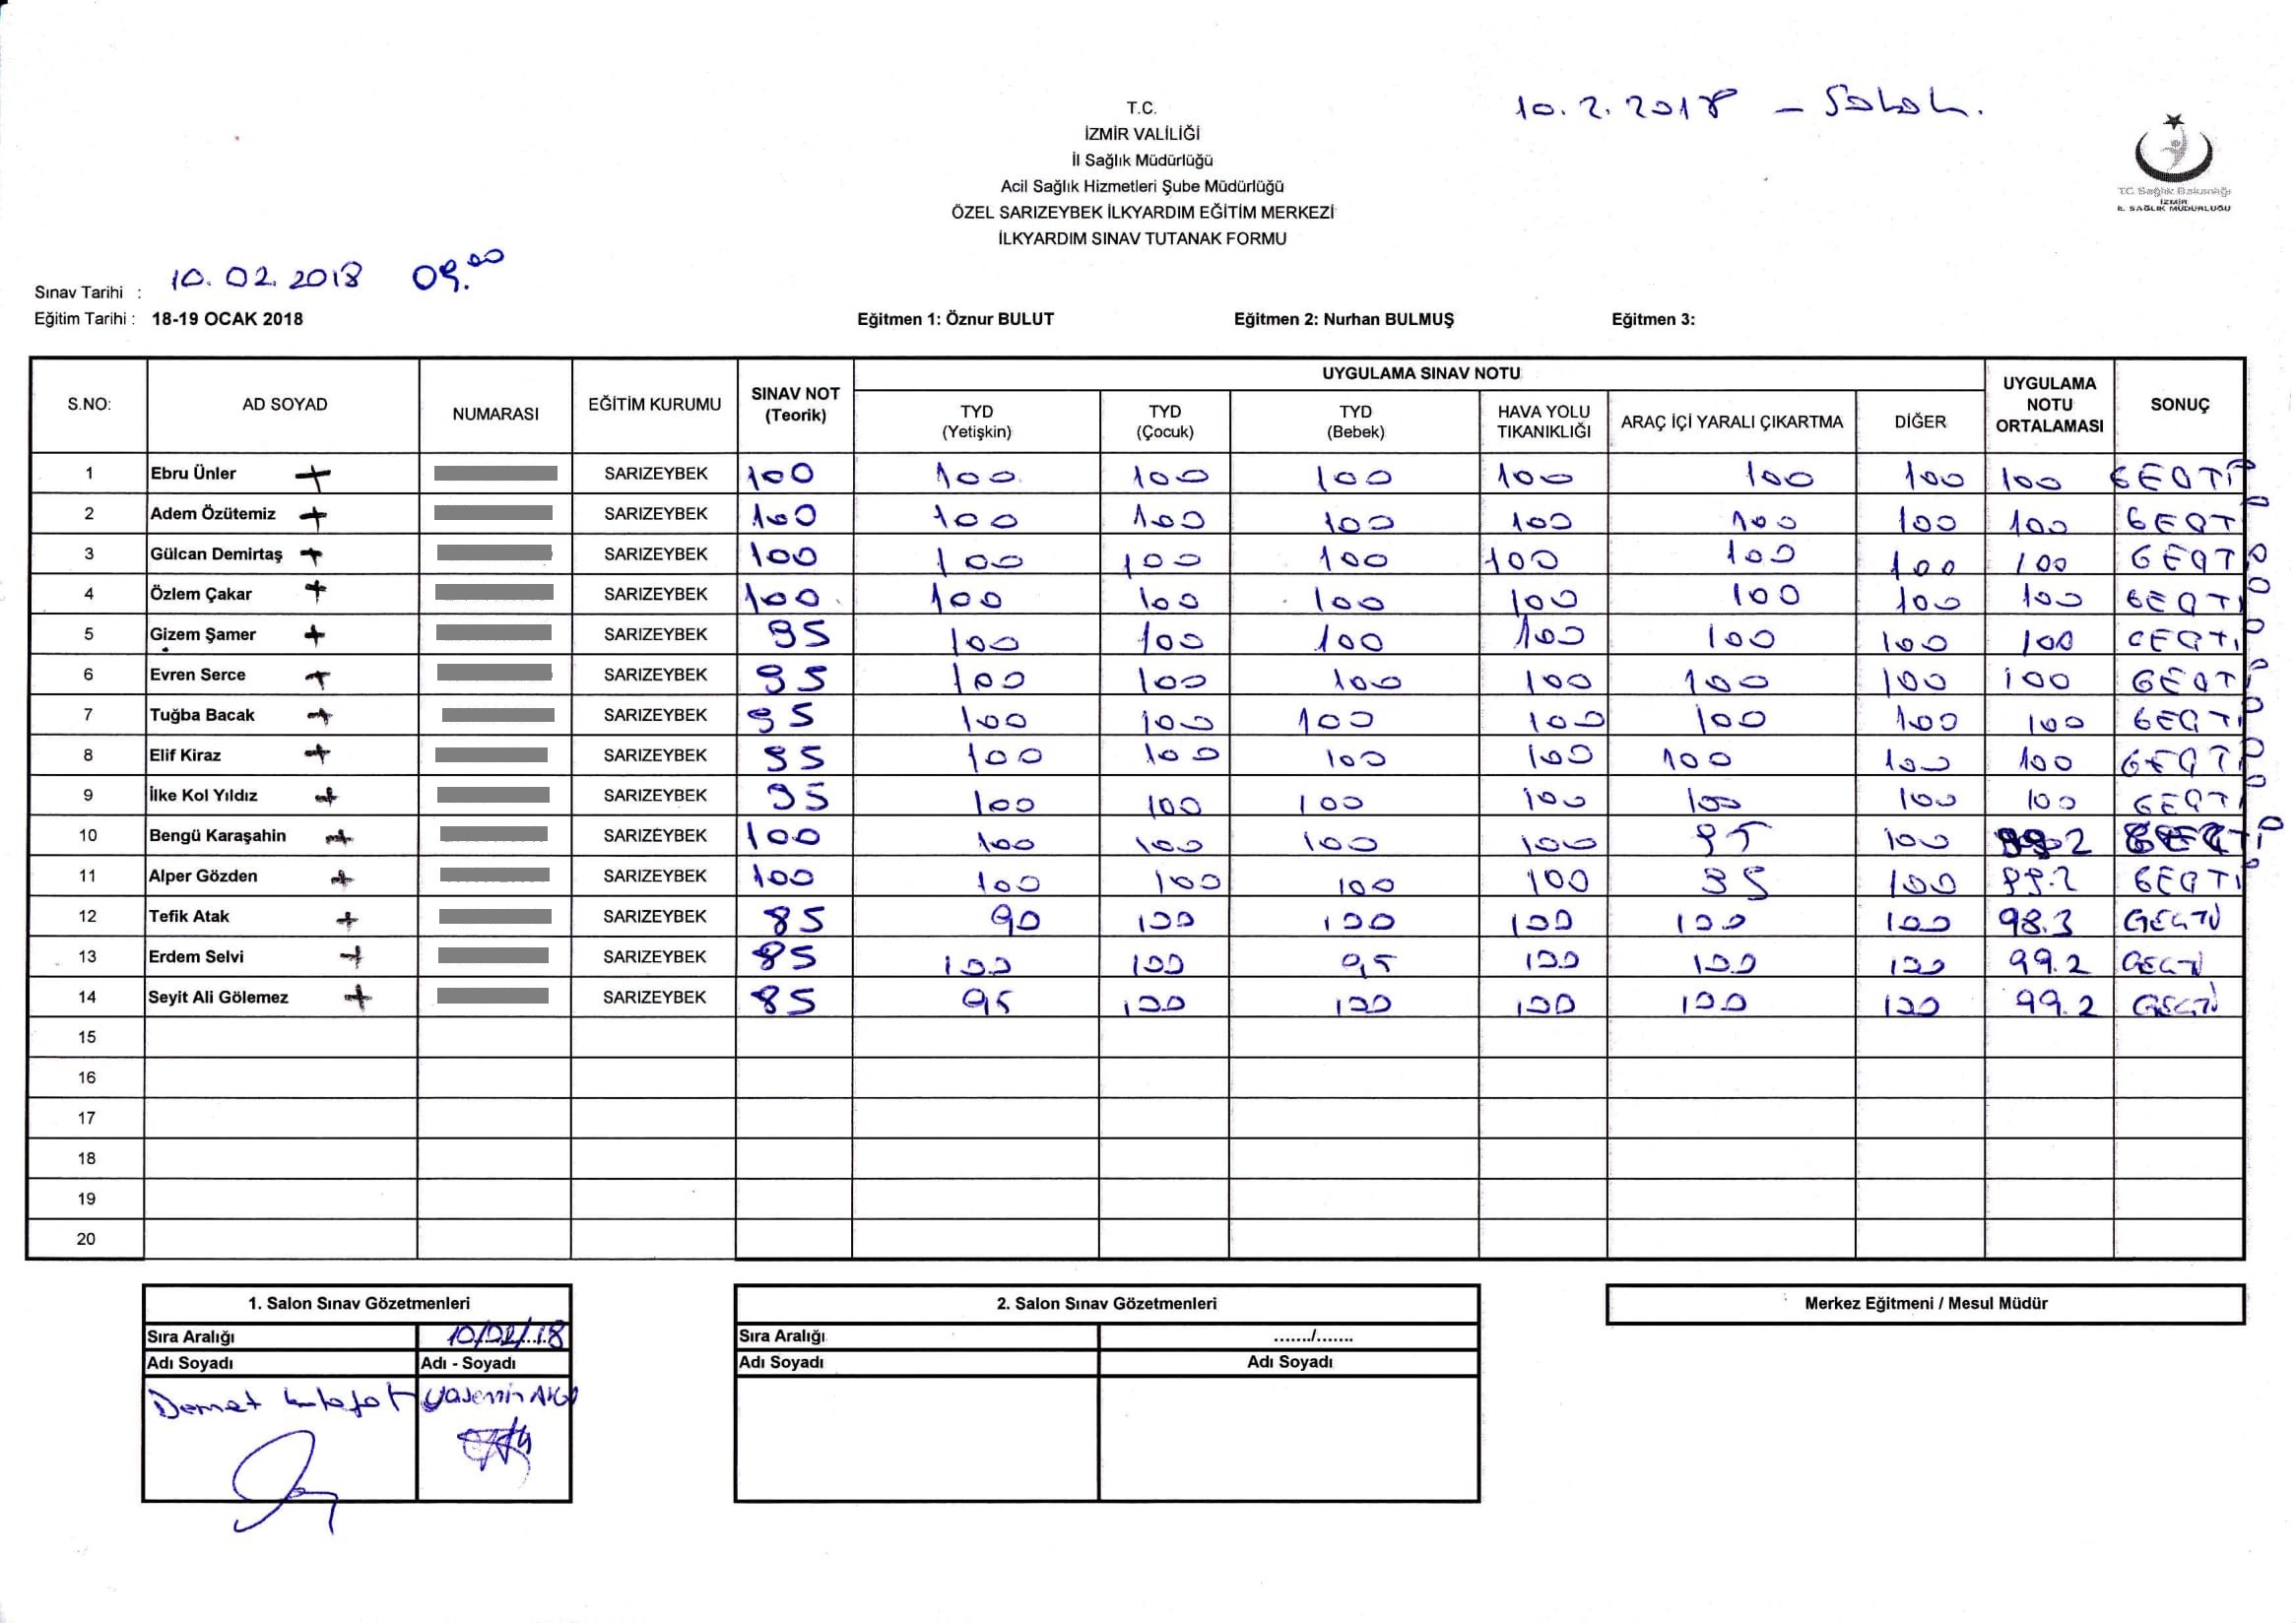 10. 2. 2018 – Sabah.
T.C.
İZMİR VALİLİĞİ
İl Sağlık Müdürlüğü
Acil Sağlık Hizmetleri Şube Müdürlüğü
ÖZEL SARIZEYBEK İLKYARDIM EĞİTİM MERKEZİ
İLKYARDIM SINAV TUTANAK FORMU
T.C. Sağlık Bakanlığı
İZMİR
İL SAĞLIK MÜDÜRLÜĞÜ
Sınav Tarihi : 10.02.2018 09.00
Eğitim Tarihi : 18-19 OCAK 2018 Eğitmen 1: Öznur BULUT Eğitmen 2: Nurhan BULMUŞ Eğitmen 3:
S.NO: AD SOYAD NUMARASI EĞİTİM KURUMU SINAV NOT (Teorik) UYGULAMA SINAV NOTU UYGULAMA NOTU ORTALAMASI SONUÇ
TYD (Yetişkin) TYD (Çocuk) TYD (Bebek) HAVA YOLU TIKANIKLIĞI ARAÇ İÇİ YARALI ÇIKARTMA DİĞER
1 Ebru Ünler + SARIZEYBEK 100 100 100 100 100 100 100 100 GEÇTİ
2 Adem Özütemiz + SARIZEYBEK 100 100 100 100 100 100 100 100 GEÇTİ
3 Gülcan Demirtaş + SARIZEYBEK 100 100 100 100 100 100 100 100 GEÇTİ
4 Özlem Çakar + SARIZEYBEK 100 100 100 100 100 100 100 100 GEÇTİ
5 Gizem Şamer + SARIZEYBEK 95 100 100 100 100 100 100 100 GEÇTİ
6 Evren Serce + SARIZEYBEK 95 100 100 100 100 100 100 100 GEÇTİ
7 Tuğba Bacak + SARIZEYBEK 95 100 100 100 100 100 100 100 GEÇTİ
8 Elif Kiraz + SARIZEYBEK 95 100 100 100 100 100 100 100 GEÇTİ
9 İlke Kol Yıldız + SARIZEYBEK 95 100 100 100 100 100 100 100 GEÇTİ
10 Bengü Karaşahin + SARIZEYBEK 100 100 100 100 100 95 100 99.2 GEÇTİ
11 Alper Gözden + SARIZEYBEK 100 100 100 100 100 95 100 99.2 GEÇTİ
12 Tefik Atak + SARIZEYBEK 85 90 100 100 100 100 100 98.3 GEÇTİ
13 Erdem Selvi + SARIZEYBEK 85 100 100 95 100 100 100 99.2 GEÇTİ
14 Seyit Ali Gölemez + SARIZEYBEK 85 95 100 100 100 100 100 99.2 GEÇTİ
15
16
17
18
19
20
1. Salon Sınav Gözetmenleri 2. Salon Sınav Gözetmenleri Merkez Eğitmeni / Mesul Müdür
Sıra Aralığı 10/02/18 Sıra Aralığı ......./.......
Adı Soyadı Adı - Soyadı Adı Soyadı Adı Soyadı
Demet Yasemin